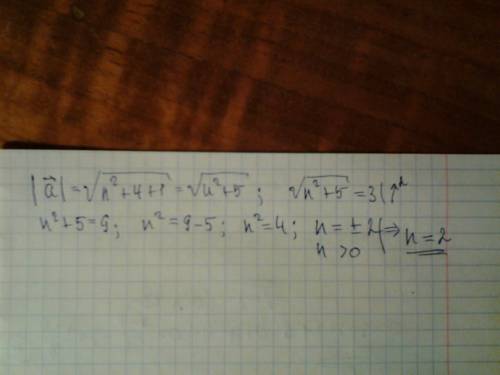 |a⃗| = √(n²+4+1) = √(n²+5) ; √(n²+5) = 3 | ↑²
n²+5=9; n²=9-5; n²=4; n=±2 | ⇒ n=2
n>0